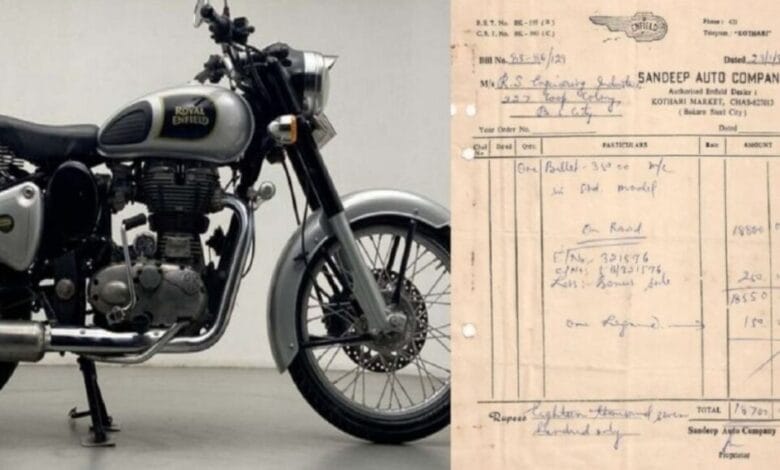 ROYAL
ENFIELD
B.S.T. No. BK-195 (R)
C.S.T. No. BK-160 (C)
ENFIELD
Phone : 431
Telegram "KOTHARI"
Bill No. 85-86/129
Dated
M/s R.S. Engineering Industries
SANDEEP AUTO COMPAN
Authorised Enfield Dealer :
KOTHARI MARKET, CHAS-827013
( Bokaro Steel City )
227 Coop Colony
B.S. City
Your Order No.
Dated
Chal No
Dated
Qnty.
PARTICULARS
Rate
AMOUNT
One Bullet-350 cc m/c
in Std. model
On Road 18800
E/No. 321576
C/No. 321576
Less: Bonus Sale 250
18550
One Legguard 150
Rupees Eighteen thousand seven
hundred only
TOTAL 18700
Sandeep Auto Company
Proprietor